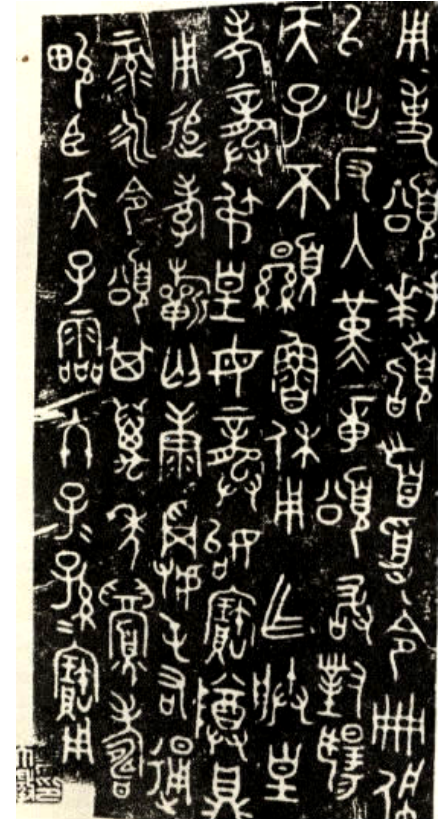 用事頌拜𩒨首受令冊佩
以出反入堇章頌敢對揚
天子不顯魯休用乍朕皇
考龏弔皇母龏始寶尊鼎
用追孝𣄨匄康𩁹屯右通
彔永令頌其萬年眉壽
畯臣天子霝冬子=孫=寶用